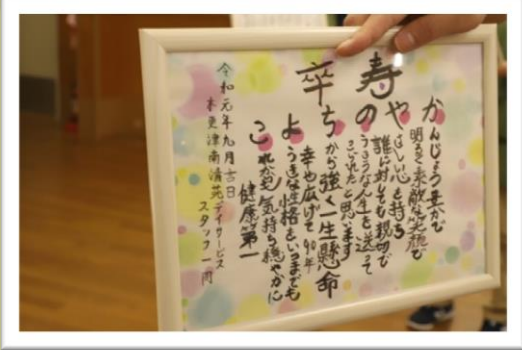 卒寿
かんじょう豊かで
明るく素敵な笑顔で
やさしい心を持ち
誰に対しても親切で
のうこうな人生を送って
こられたと思います
ちから強く一生懸命
幸や広げて90年
ようきな性格をいつまでも
これからも気持ち穏やかに
健康第一
令和元年九月吉日
木更津南清苑デイサービス
スタッフ一同